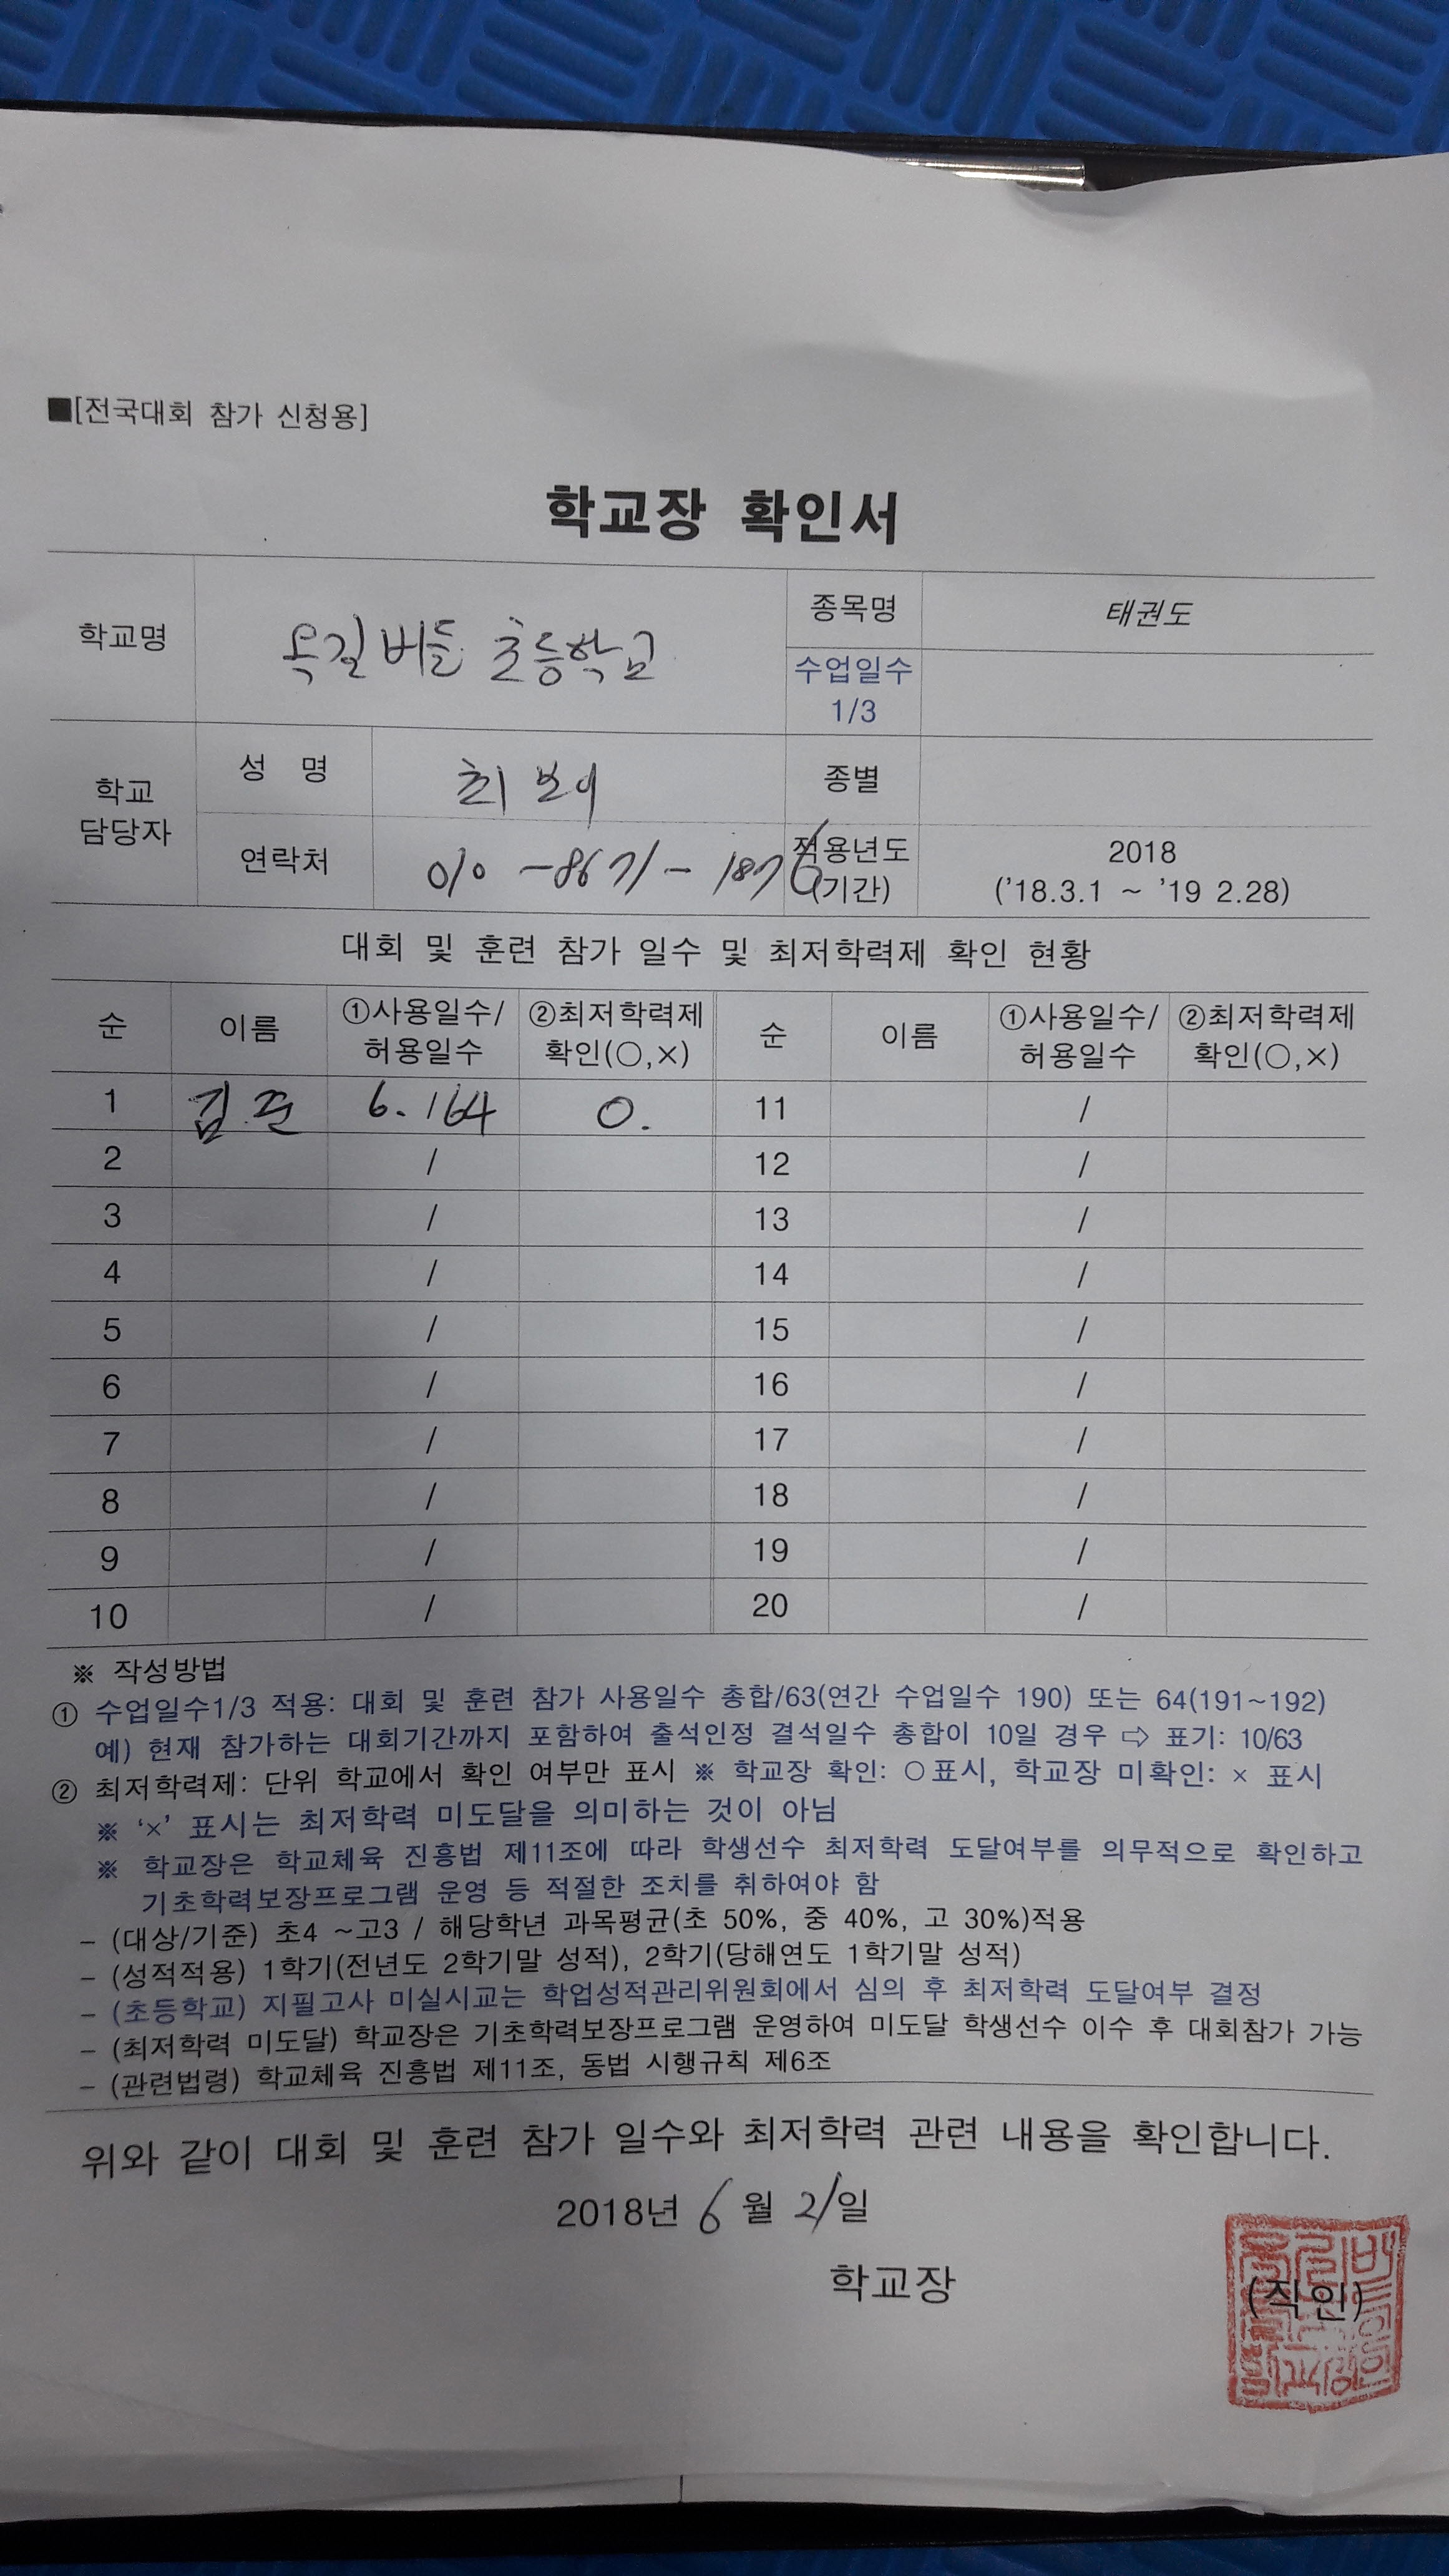 ■[전국대회 참가 신청용]
학교장 확인서
학교명 옥길버들 초등학교 종목명 태권도
수업일수 1/3
학교 담당자 성 명 최 종별
연락처 010-8671-1876 적용년도 (기간) 2018 ('18.3.1 ~ '19 2.28)
대회 및 훈련 참가 일수 및 최저학력제 확인 현황
순 이름 ①사용일수/허용일수 ②최저학력제 확인(○,×) 순 이름 ①사용일수/허용일수 ②최저학력제 확인(○,×)
1 김준 6. /64 O. 11 /
2 / 12 /
3 / 13 /
4 / 14 /
5 / 15 /
6 / 16 /
7 / 17 /
8 / 18 /
9 / 19 /
10 / 20 /
※ 작성방법
① 수업일수1/3 적용: 대회 및 훈련 참가 사용일수 총합/63(연간 수업일수 190) 또는 64(191~192)
예) 현재 참가하는 대회기간까지 포함하여 출석인정 결석일수 총합이 10일 경우 ⇨ 표기: 10/63
② 최저학력제: 단위 학교에서 확인 여부만 표시 ※ 학교장 확인: ○표시, 학교장 미확인: × 표시
※ '×' 표시는 최저학력 미도달을 의미하는 것이 아님
※ 학교장은 학교체육 진흥법 제11조에 따라 학생선수 최저학력 도달여부를 의무적으로 확인하고
기초학력보장프로그램 운영 등 적절한 조치를 취하여야 함
- (대상/기준) 초4 ~고3 / 해당학년 과목평균(초 50%, 중 40%, 고 30%)적용
- (성적적용) 1학기(전년도 2학기말 성적), 2학기(당해연도 1학기말 성적)
- (초등학교) 지필고사 미실시교는 학업성적관리위원회에서 심의 후 최저학력 도달여부 결정
- (최저학력 미도달) 학교장은 기초학력보장프로그램 운영하여 미도달 학생선수 이수 후 대회참가 가능
- (관련법령) 학교체육 진흥법 제11조, 동법 시행규칙 제6조
위와 같이 대회 및 훈련 참가 일수와 최저학력 관련 내용을 확인합니다.
2018년 6월 21일
학교장 (직인)